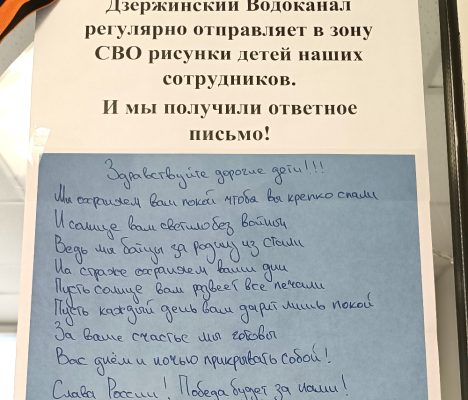 Дзержинский Водоканал
регулярно отправляет в зону
СВО рисунки детей наших
сотрудников.
И мы получили ответное
письмо!
Здравствуйте дорогие дети!!!
Мы охраняем вам покой чтобы вы крепко спали
И солнце вам светило без войны
Ведь мы бойцы за родину из стали
На страже охраняем ваши дни
Пусть солнце вам развеет все печали
Пусть каждый день вам дарит лишь покой
За ваше счастье мы готовы
Вас днём и ночью прикрывать собой!
Слава России! Победа будет за нами!